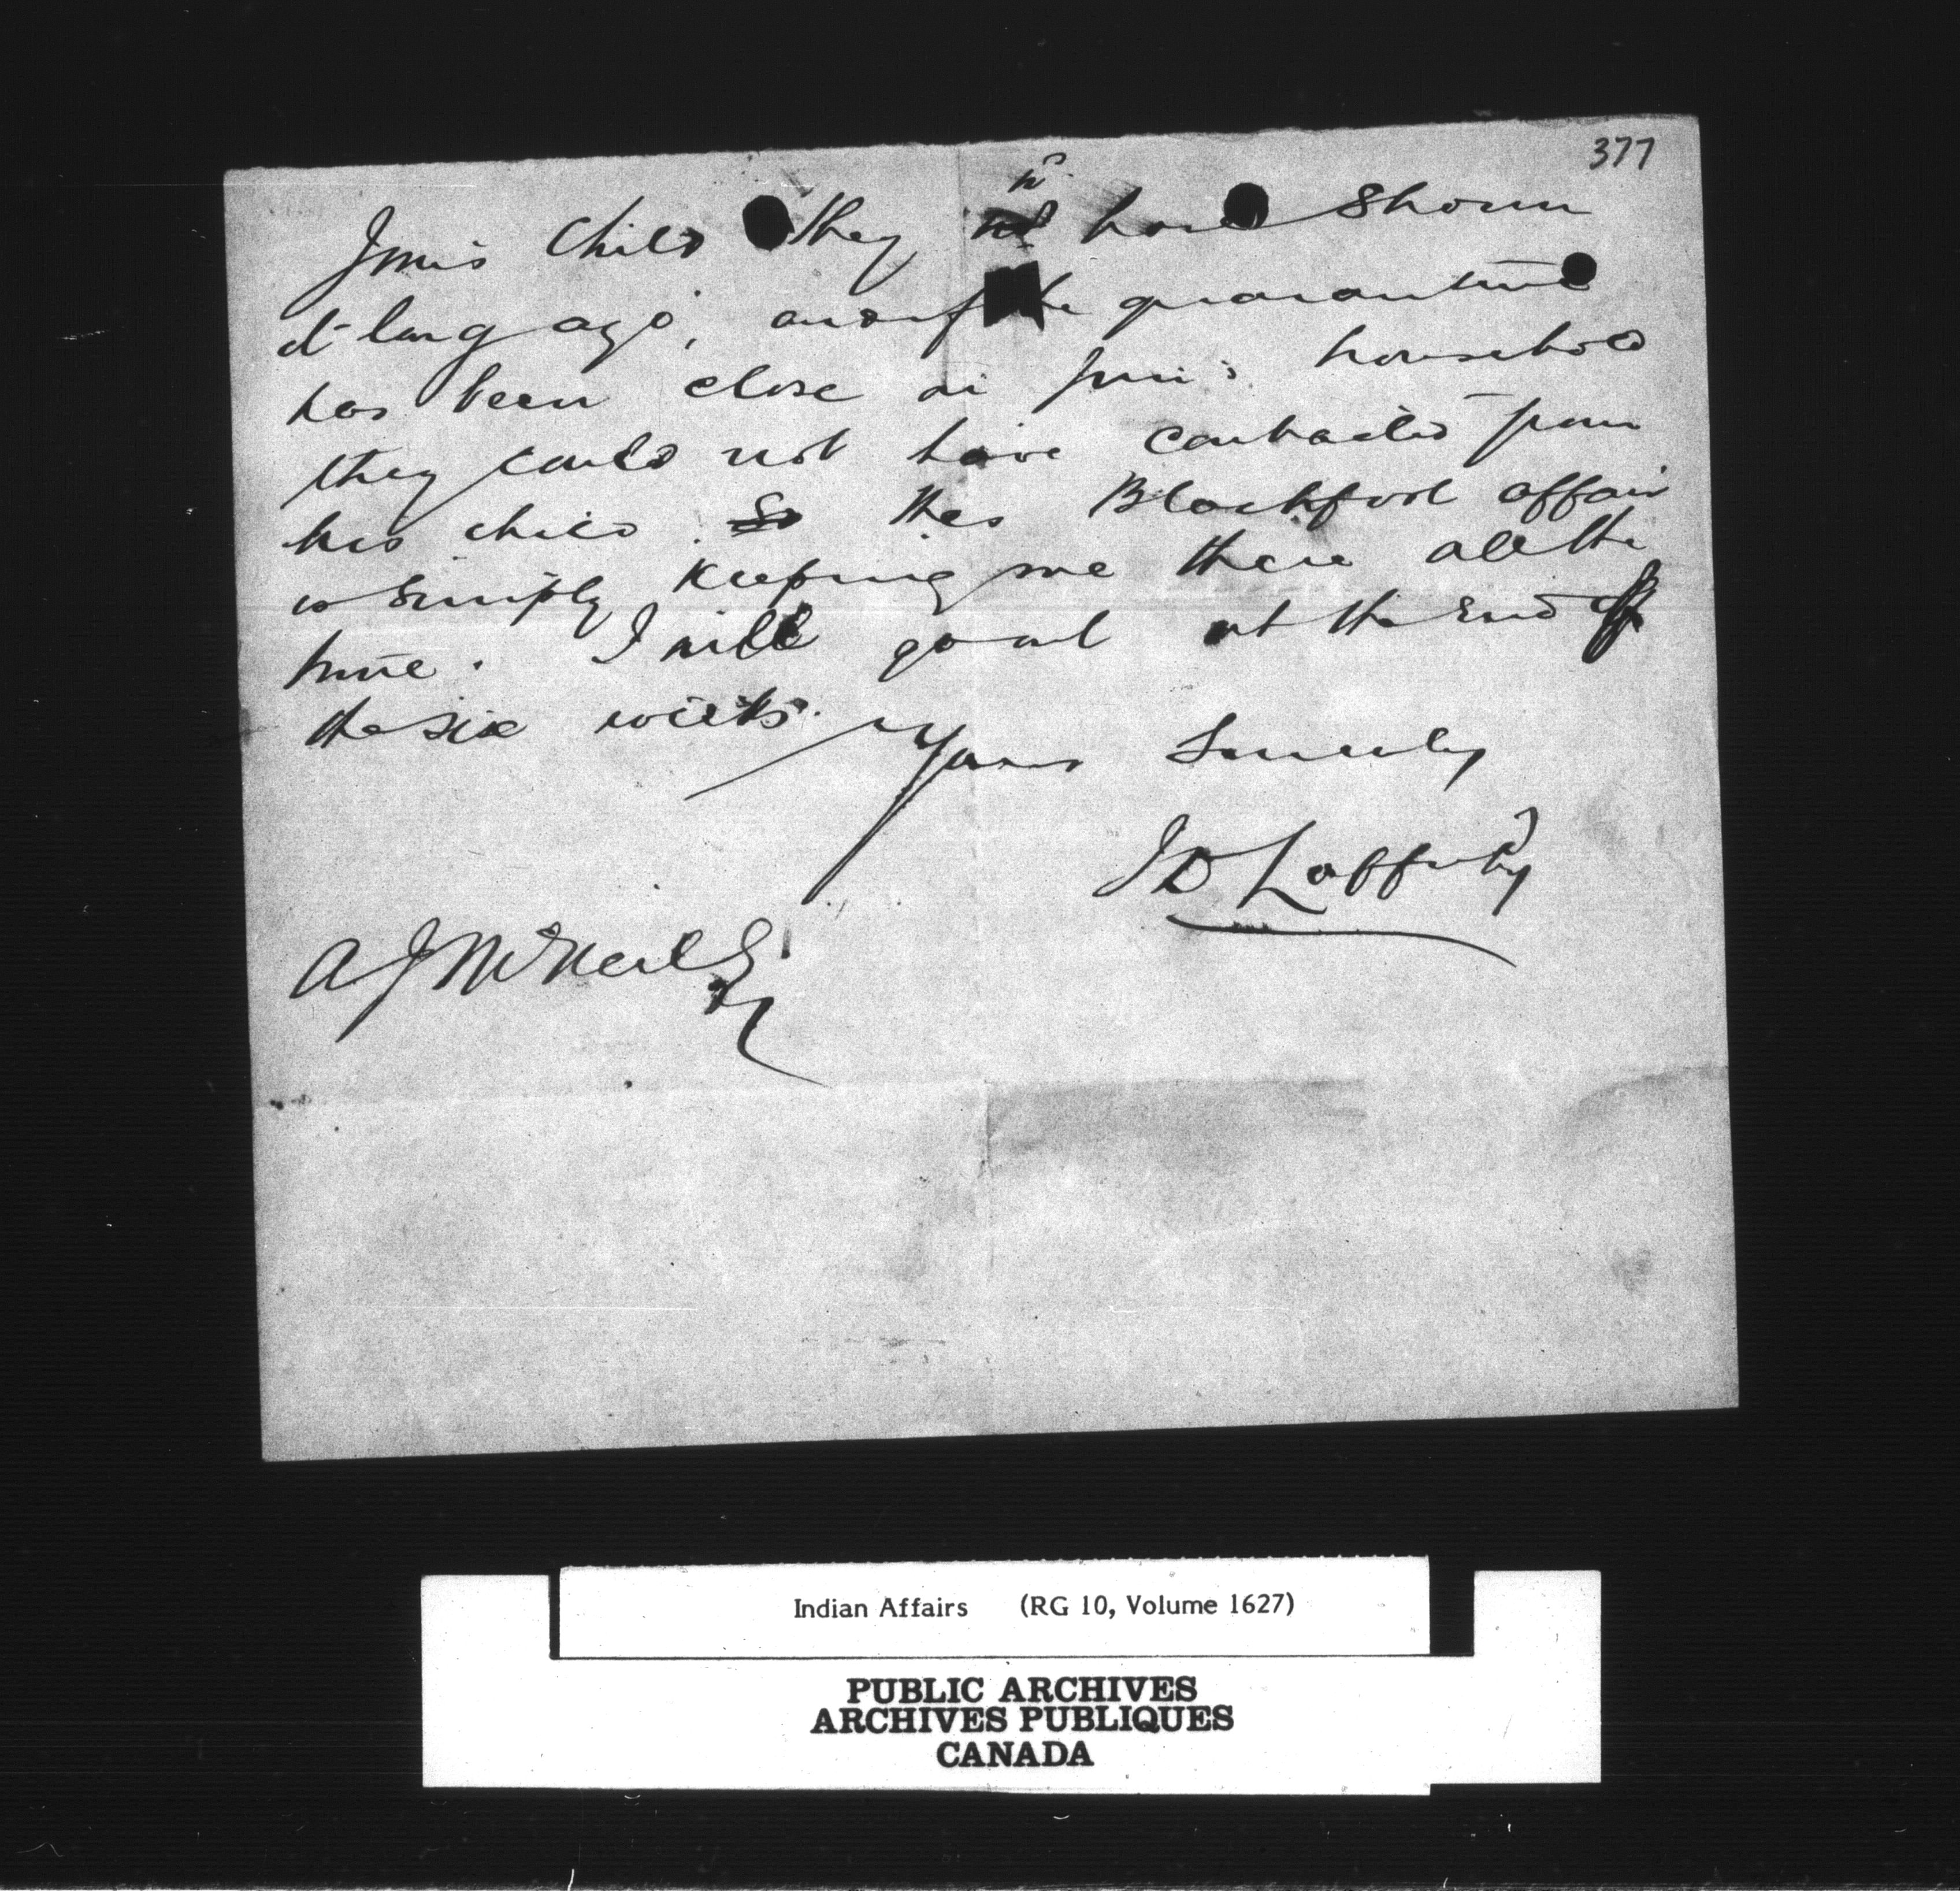 377
Jim's child they w^d have shown
it long ago, and if the quarantine
has been close in Jim's household
they could not have contracted from
his child. So this Blackfoot affair
is simply keeping me there all the
time. I will go out at the end of
the six weeks.
Yours Sincerely
J D Lafferty
A J McNeil Esq
Indian Affairs (RG 10, Volume 1627)
PUBLIC ARCHIVES
ARCHIVES PUBLIQUES
CANADA